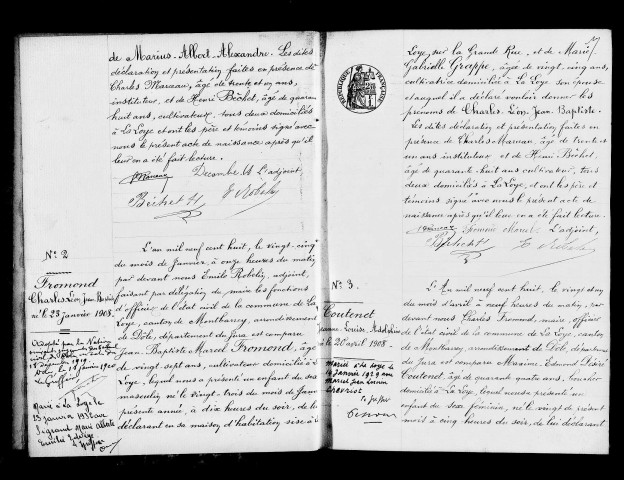 de Marius-Albert-Alexandre. Les dites
déclaration et présentation faites en présence de
Charles Marceau, âgé de trente et un ans,
instituteur, et de Henri Béchet, âgé de quarante
huit ans, cultivateur, tous deux domiciliés
à La Loye et ont les père et témoins signé avec
nous le présent acte de naissance après qu'il
leur en a été fait lecture.
L'adjoint,
Béchet H
N° 2
Fromond
Charles Léon Jean Baptiste
né le 23 janvier 1908.
Adopté par la Nation
Le Greffier
Marié à La Loye le
L'an mil neuf cent huit, le vingt-cinq
du mois de Janvier, à onze heures du matin,
par devant nous Emile Rebelly, adjoint,
faisant par délégation du maire les fonctions
d'officier de l'état civil de la commune de La
Loye, canton de Montbarrey, arrondissement
de Dôle, département du Jura est comparu
Jean Baptiste Marcel Fromond, âgé
de vingt-sept ans, cultivateur domicilié à
Loye, lequel nous a présenté un enfant du sexe
masculin né le vingt-trois du mois de Janvier
présente année, à dix heures du soir, de lui
déclarant en sa maison d'habitation sise à La
RÉPUBLIQUE FRANÇAISE
Loye, sur la Grande Rue, et de Marie
Gabrielle Grappe, âgée de vingt-cinq ans,
cultivatrice domiciliée à La Loye, son épouse
et auquel il a déclaré vouloir donner les
prénoms de Charles-Léon-Jean-Baptiste.
Les dites déclaration et présentation faites en
présence de Charles Marceau, âgé de trente et
un ans instituteur et de Henri Béchet,
âgé de quarante huit ans cultivateur, tous
deux domiciliés à La Loye, et ont les père et
témoins signé avec nous le présent acte de
naissance après qu'il leur en a été fait lecture.
L'adjoint,
Béchet H
N° 3.
Coutenet
Louise
le 20 avril 1908.
Marié à La Loye le
Janvier 1929 avec
Le Greffier
L'An mil neuf cent huit, le vingt et un
du mois d'avril à neuf heures du matin, par
devant nous Charles Fromond, maire, officier
de l'état civil de la commune de La Loye, canton
de Montbarrey, arrondissement de Dôle, département
du Jura est comparu Maxime Edmond Désiré
Coutenet, âgé de quarante quatre ans,
domicilié à La Loye, lequel nous a présenté un
enfant du sexe féminin, né le vingt du présent
mois à cinq heures du soir, de lui déclarant